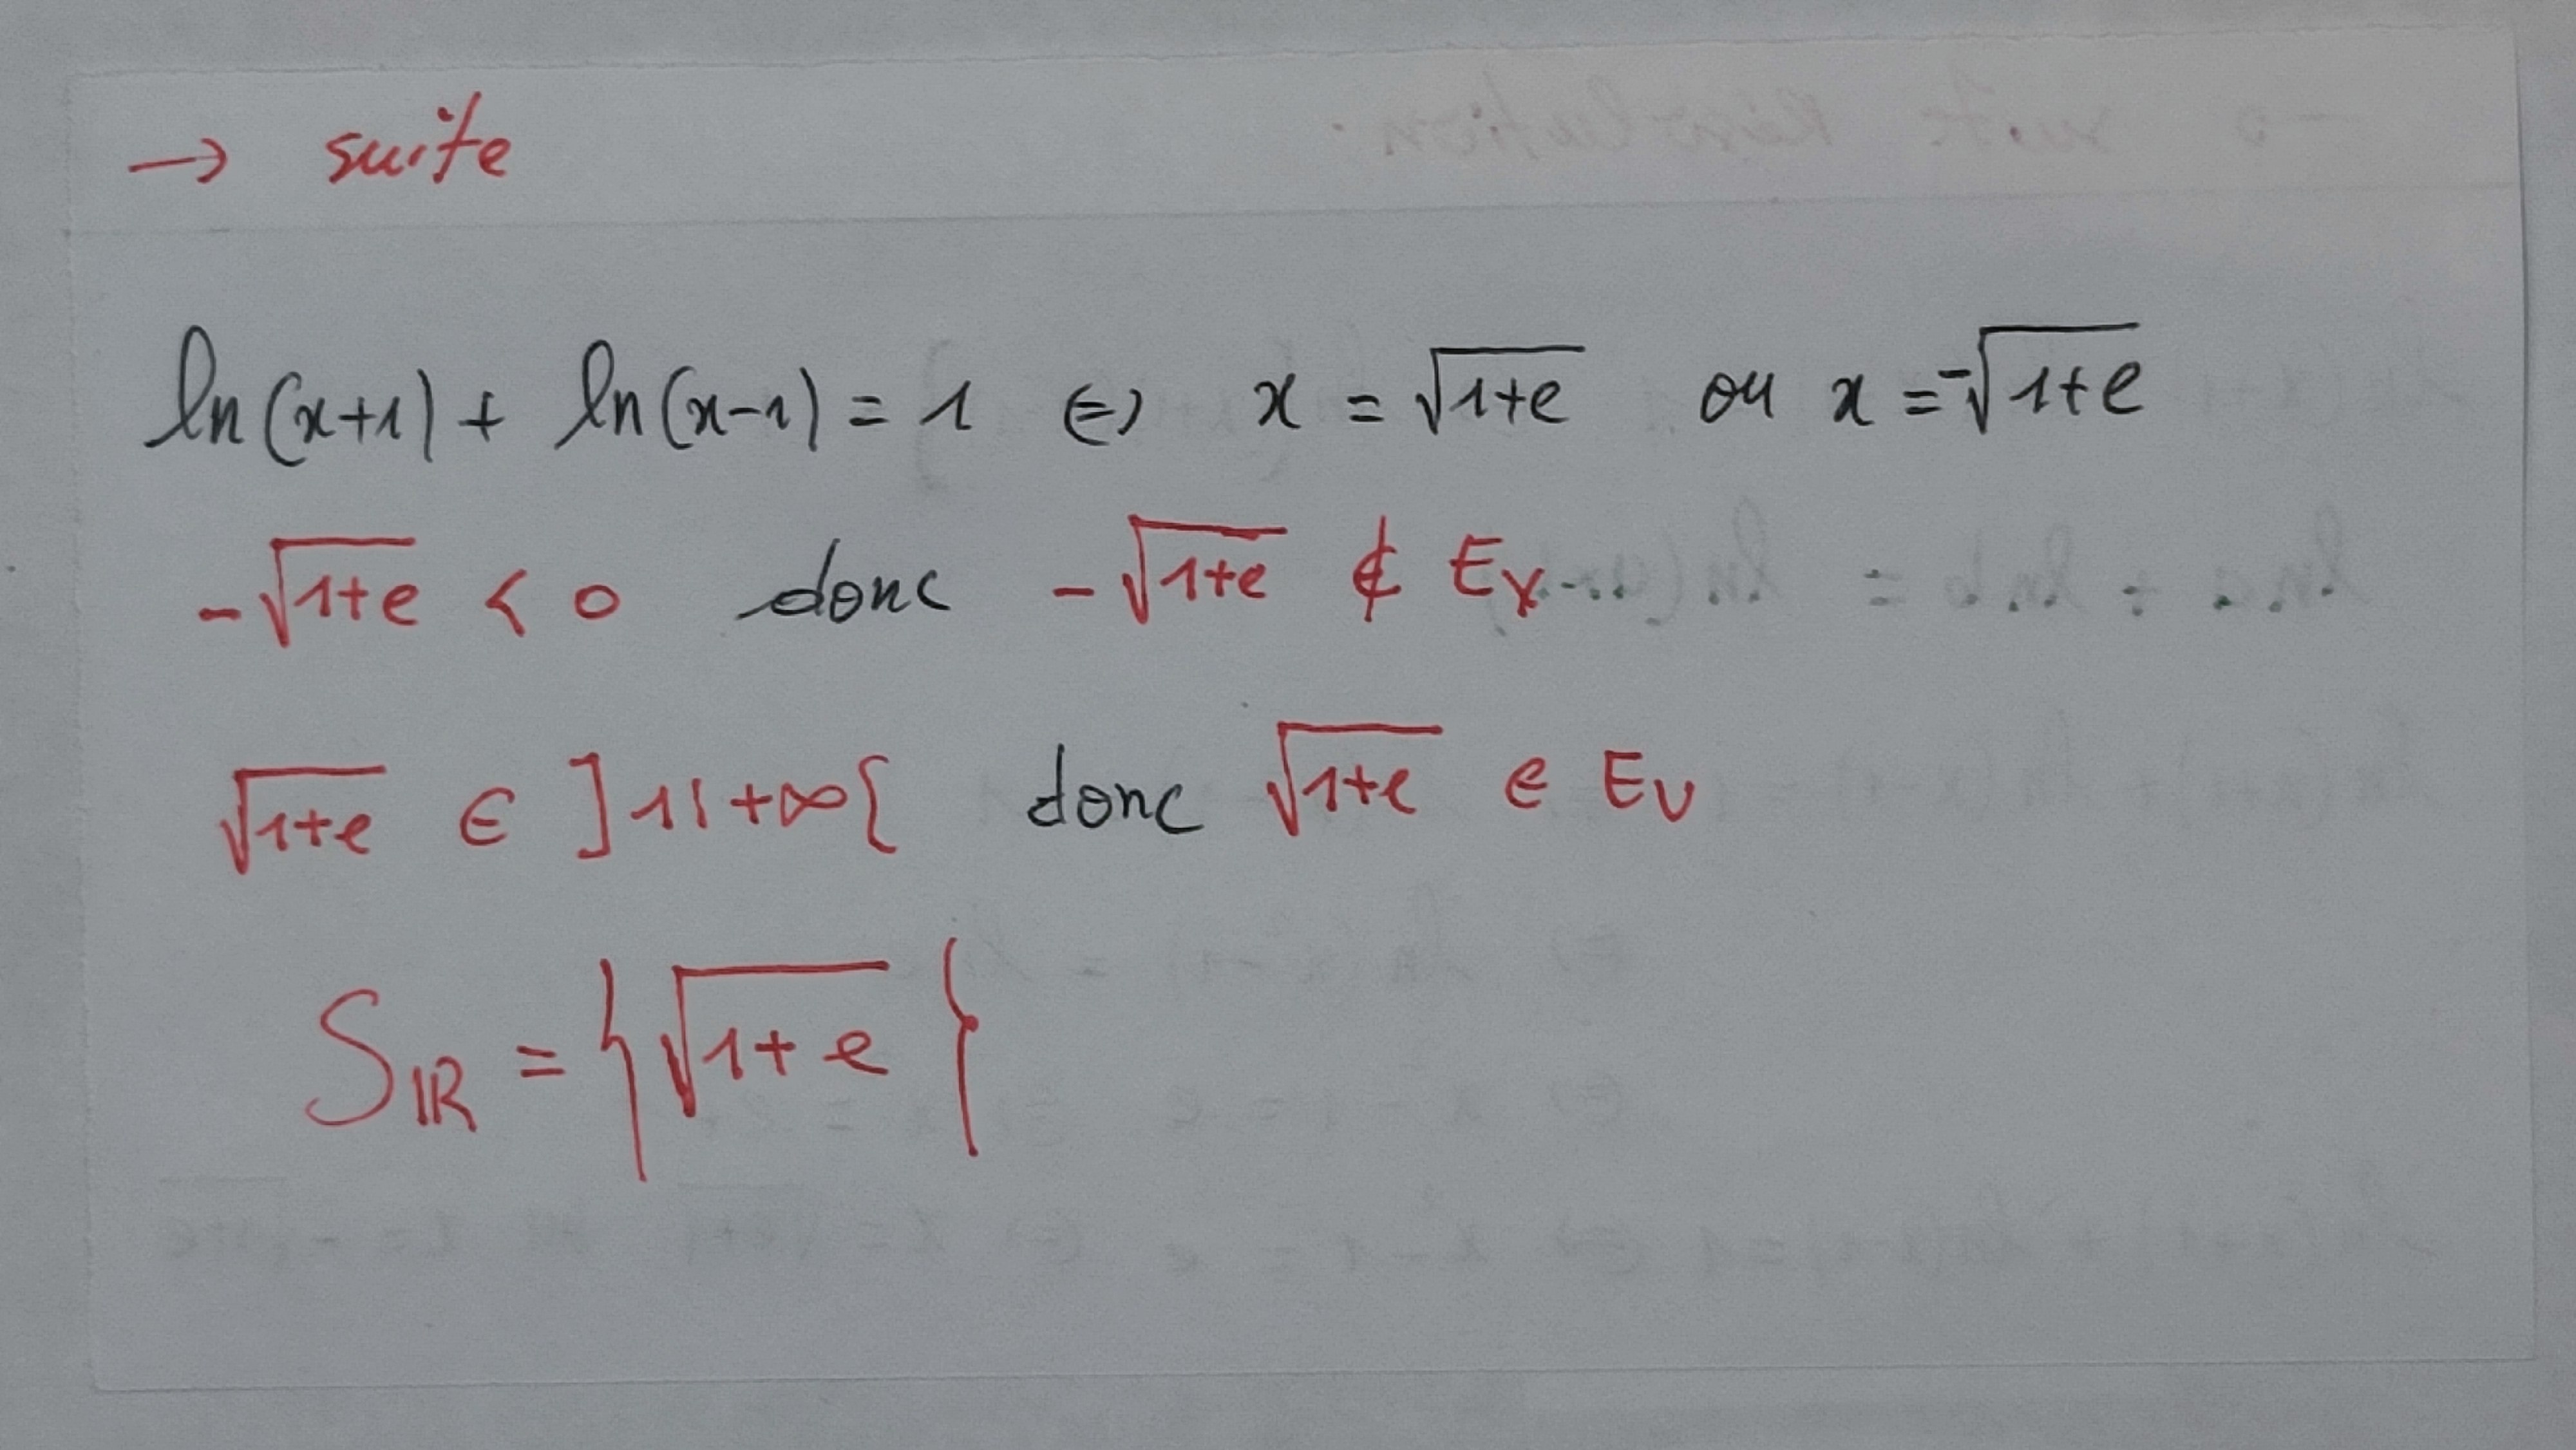 → suite
ln(x+1) + ln(x-1) = 1 ⇔ x = √1+e ou x = -√1+e
-√1+e < 0 donc -√1+e ∉ Ev
√1+e ∈ ]1; +∞[ donc √1+e ∈ Ev
S_IR = {√1+e}